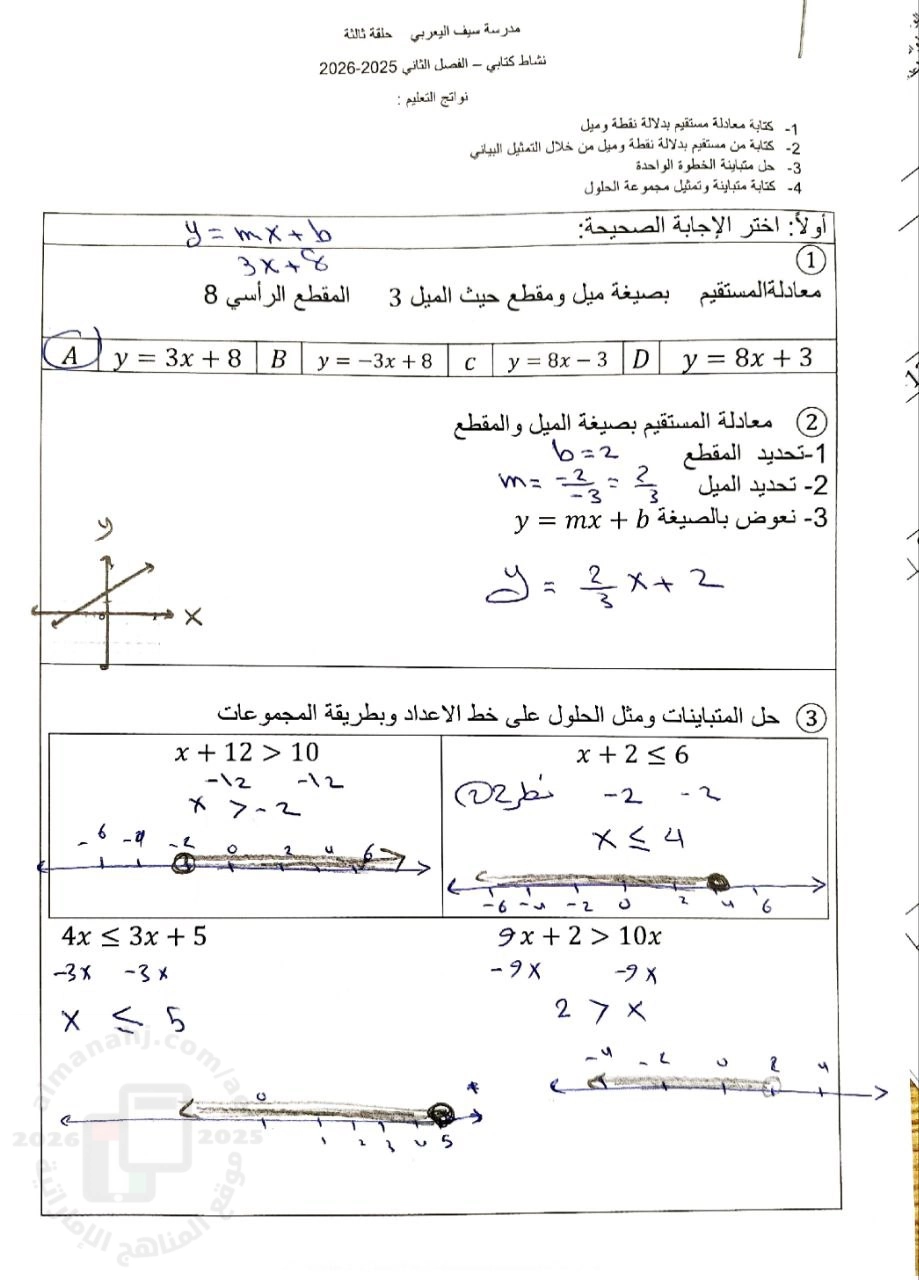 مدرسة سيف اليعربي حلقة ثالثة
نشاط كتابي – الفصل الثاني 2025-2026
نواتج التعليم :
1- كتابة معادلة مستقيم بدلالة نقطة وميل
2- كتابة من مستقيم بدلالة نقطة وميل من خلال التمثيل البياني
3- حل متباينة الخطوة الواحدة
4- كتابة متباينة وتمثيل مجموعة الحلول
أولاً: اختر الإجابة الصحيحة:
y = mx + b
3x + 8
①
معادلةالمستقيم بصيغة ميل ومقطع حيث الميل 3 المقطع الرأسي 8
A y = 3x + 8 B y = −3x + 8 c y = 8x − 3 D y = 8x + 3
② معادلة المستقيم بصيغة الميل والمقطع
1-تحديد المقطع b = 2
2- تحديد الميل m = -2/-3 = 2/3
3- نعوض بالصيغة y = mx + b
y = 2/3 x + 2
y
x
③ حل المتباينات ومثل الحلول على خط الاعداد وبطريقة المجموعات
x + 12 > 10
-12 -12
x > -2
-6 -4 -2 0 2 4 6
x + 2 ≤ 6
-2 -2
x ≤ 4
-6 -4 -2 0 2 4 6
4x ≤ 3x + 5
-3x -3x
x ≤ 5
0 1 2 3 4 5
9x + 2 > 10x
-9x -9x
2 > x
-4 -2 0 2 4
almanahj.com/ae
2026 2025
موقع المناهج الإماراتية